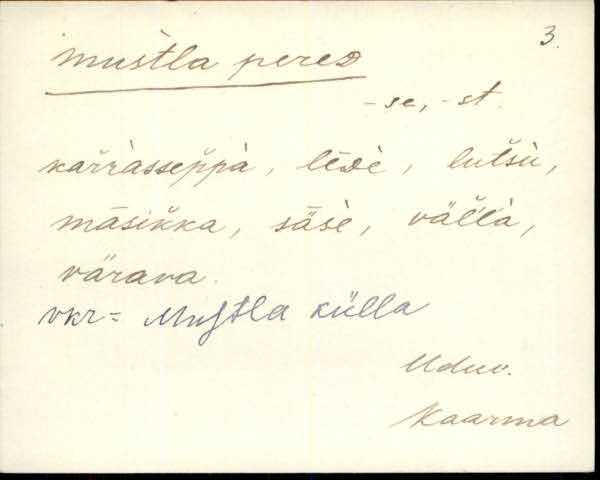 3.
mustla pereᴅ
-se, -st.
kar̆r̆àsseppà, lēᴅè, lutsù,
māsikka, säsè, väl̆l̆à,
värava.
vkr = Mustla külla
Uduv.
Kaarma